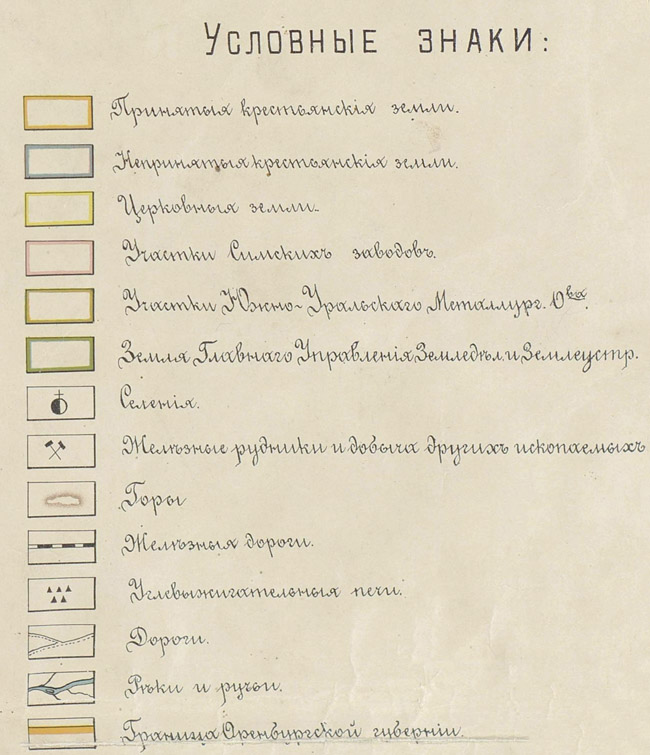 Условные знаки:
Принятыя крестьянскія земли.
Непринятыя крестьянскія земли.
Церковныя земли.
Участки Симскихъ заводовъ.
Участки Южно-Уральскаго Металлург. О-ва.
Земля Главнаго Управленія Земледѣл. и Землеустр.
Селенія.
Желѣзные рудники и добыча другихъ ископаемыхъ
Горы
Желѣзныя дороги.
Углевыжигательныя печи.
Дороги.
Рѣки и ручьи.
Граница Оренбургской губерніи.